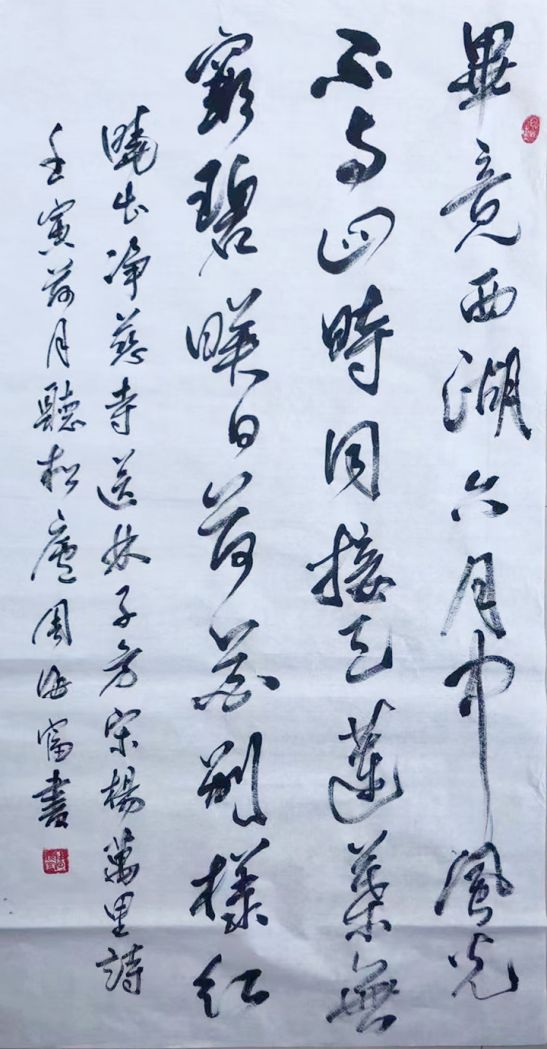 畢竟西湖六月中風光
不与四時同接天蓮葉無
窮碧映日荷花別樣紅
曉出净慈寺送林子方宋楊萬里詩
壬寅荷月聽松廬周海富書